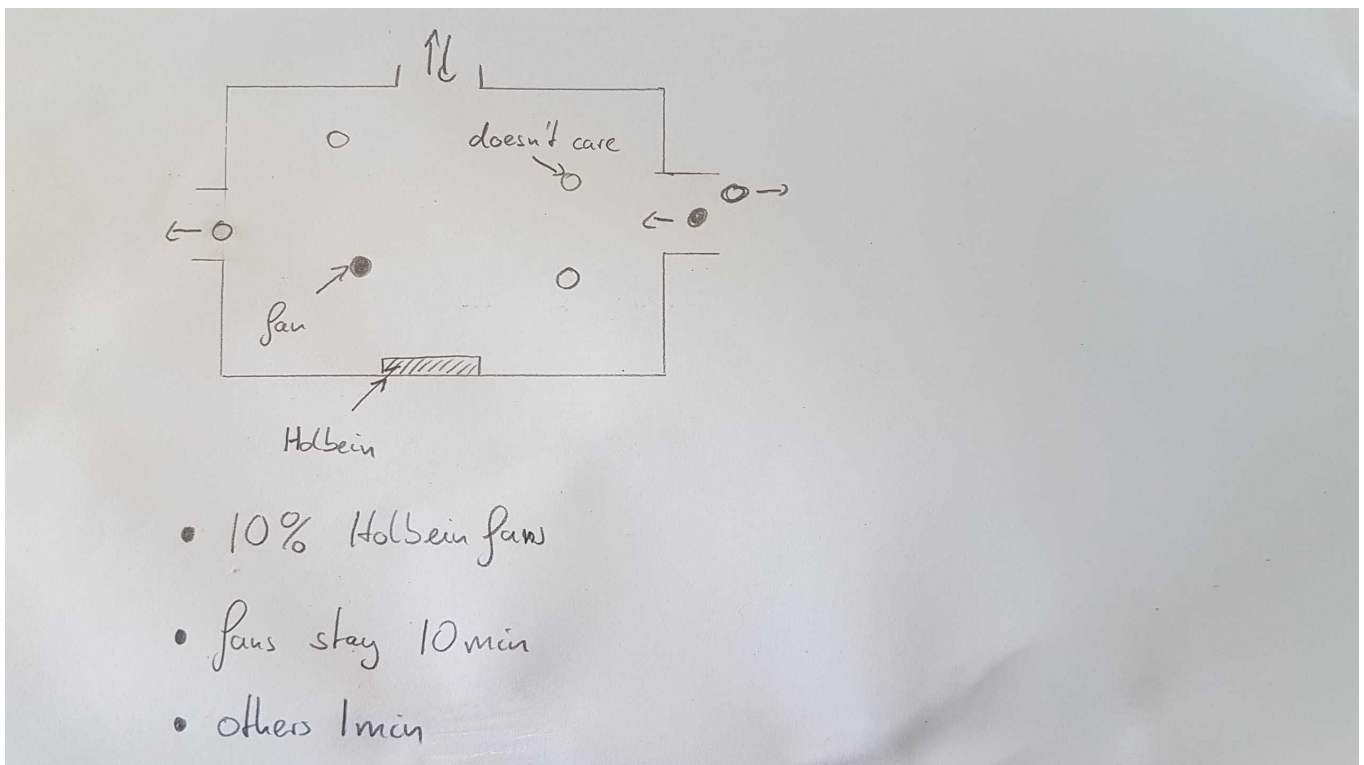 doesn't care
fan
Holbein
• 10% Holbein fans
• fans stay 10min
• others 1min